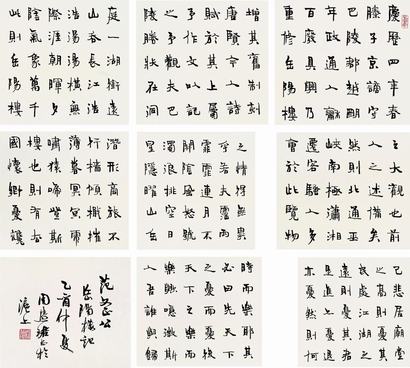 慶歷四年春
滕子京謫守
巴陵郡越明
年政通人和
百廢具興乃
重修岳陽樓
增其舊制刻
唐賢今人詩
賦於其上屬
予作文以記
之予觀夫巴
陵勝狀在洞
庭一湖銜遠
山吞長江浩
浩湯湯橫無
際涯朝暉夕
陰氣象萬千
此則岳陽樓
之大觀也前
人之述備矣
然則北通巫
峽南極瀟湘
遷客騷人多
會於此覽物
之情得無異
乎若夫霪雨
霏霏連月不
開陰風怒號
濁浪排空日
星隱曜山岳
潛形商旅不
行檣傾楫摧
薄暮冥冥虎
嘯猿啼登斯
樓也則有去
國懷鄉憂讒
己悲居廟堂
之高則憂其
民處江湖之
遠則憂其君
是進亦憂退
亦憂然則何
時而樂耶其
必曰先天下
之憂而憂後
天下之樂而
樂歟噫微斯
人吾誰與歸
范文正公
岳陽樓記
乙酉仲夏
周慧珺於
滬上